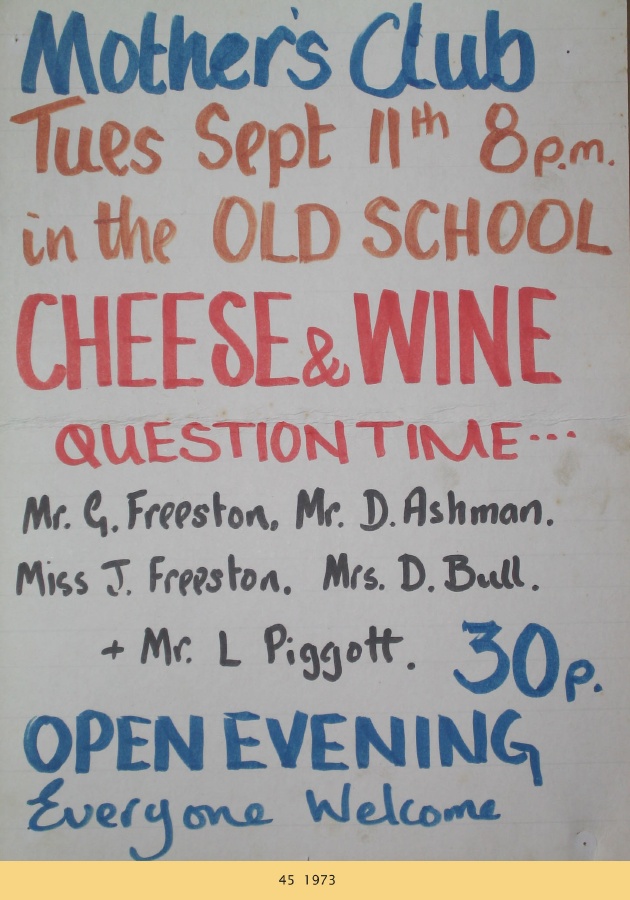 Mother's Club
Tues Sept 11th 8p.m.
in the OLD SCHOOL
CHEESE & WINE
QUESTION TIME...
Mr. G. Freeston, Mr. D. Ashman.
Miss J. Freeston. Mrs. D. Bull.
+ Mr. L Piggott. 30p.
OPEN EVENING
Everyone Welcome
45 1973